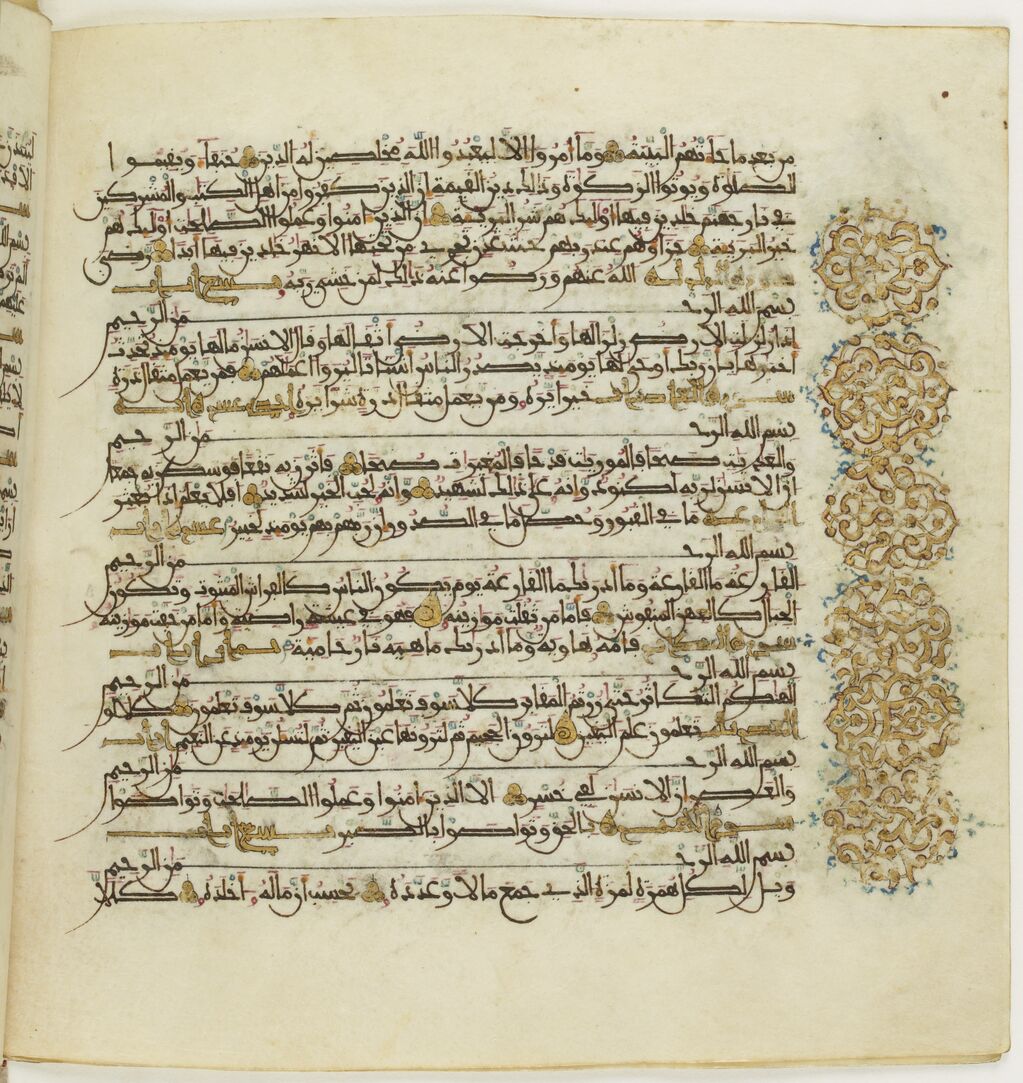 من بعد ما جاءتهم البينة وما أمروا إلا ليعبدوا الله مخلصين له الدين حنفاء ويقيموا
الصلوة ويوتوا الزكوة وذلك دين القيمة ان الذين كفروا من اهل الكتب والمشركين
في نار جهنم خلدين فيها اوليك هم شر البرية ان الذين امنوا وعملوا الصلحت اوليك هم
خير البرية جزاؤهم عند ربهم جنت عدن تجري من تحتها الانهر خلدين فيها ابدا رضي
الله عنهم ورضوا عنه ذلك لمن خشي ربه تسع ايات
بسم الله الرحمن الرحيم
اذا زلزلت الارض زلزالها واخرجت الارض اثقالها وقال الانسن ما لها يومئذ تحدث
اخبرها بان ربك اوحى لها يومئذ يصدر الناس اشتاتا ليروا اعملهم فمن يعمل مثقال ذرة
سورة والعاديات خيرا يره ومن يعمل مثقال ذرة شرا يره احدى عشرة اية
بسم الله الرحمن الرحيم
والعديت ضبحا فالموريت قدحا فالمغيرت صبحا فاثرن به نقعا فوسطن به جمعا
ان الانسن لربه لكنود وانه على ذلك لشهيد وانه لحب الخير لشديد افلا يعلم اذا بعثر
ما في القبور وحصل ما في الصدور ان ربهم بهم يومئذ لخبير عشر ايات
بسم الله الرحمن الرحيم
القارعة ما القارعة وما ادريك ما القارعة يوم يكون الناس كالفراش المبثوث وتكون
الجبال كالعهن المنفوش فاما من ثقلت موازينه فهو في عيشة راضية واما من خفت موازينه
سورة التكاثر فامه هاوية وما ادريك ماهيه نار حامية ثماني ايات
بسم الله الرحمن الرحيم
الهيكم التكاثر حتى زرتم المقابر كلا سوف تعلمون ثم كلا سوف تعلمون كلا لو
تعلمون علم اليقين لترون الجحيم ثم لترونها عين اليقين ثم لتسئلن يومئذ عن النعيم ايات
بسم الله الرحمن الرحيم
والعصر ان الانسن لفي خسر الا الذين امنوا وعملوا الصلحت وتواصوا
سورة الهمزة بالحق وتواصوا بالصبر تسع ايات
بسم الله الرحمن الرحيم
ويل لكل همزة لمزة الذي جمع مالا وعدده يحسب ان ماله اخلده كلا